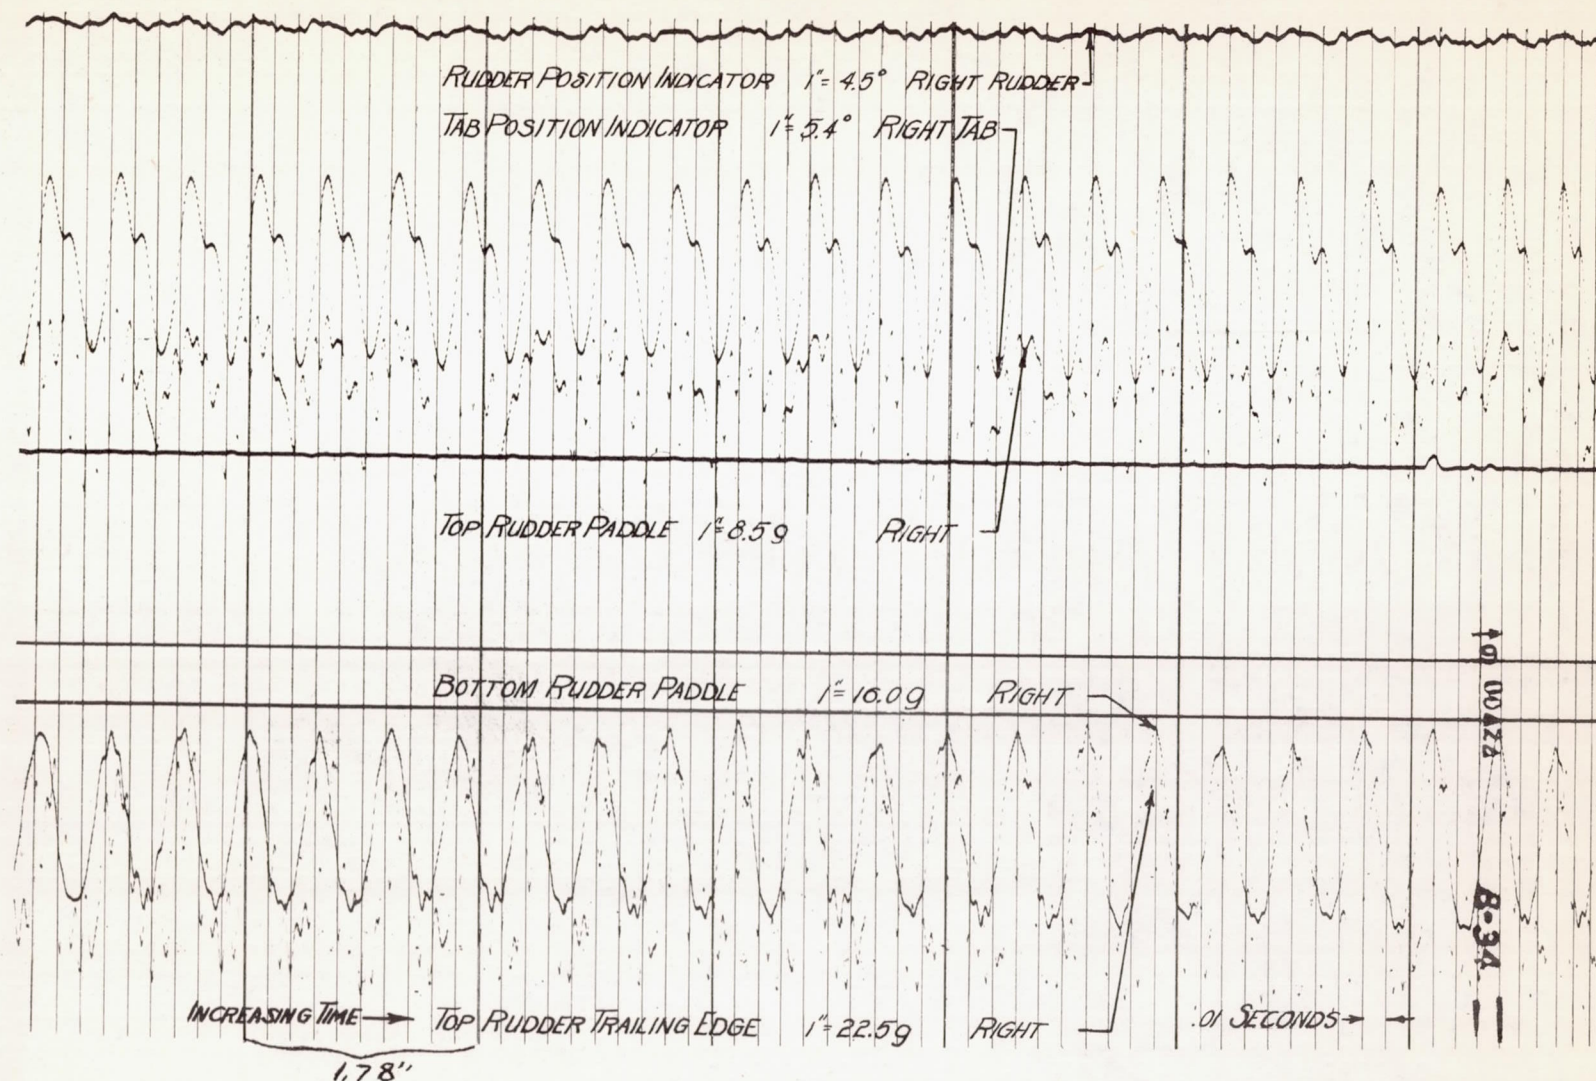 RUDDER POSITION INDICATOR 1"= 4.5° RIGHT RUDDER
TAB POSITION INDICATOR 1"= 5.4° RIGHT TAB
TOP RUDDER PADDLE 1"= 8.5g RIGHT
BOTTOM RUDDER PADDLE 1"= 16.0g RIGHT
INCREASING TIME → TOP RUDDER TRAILING EDGE 1"= 22.5g RIGHT
.01 SECONDS
1.78"